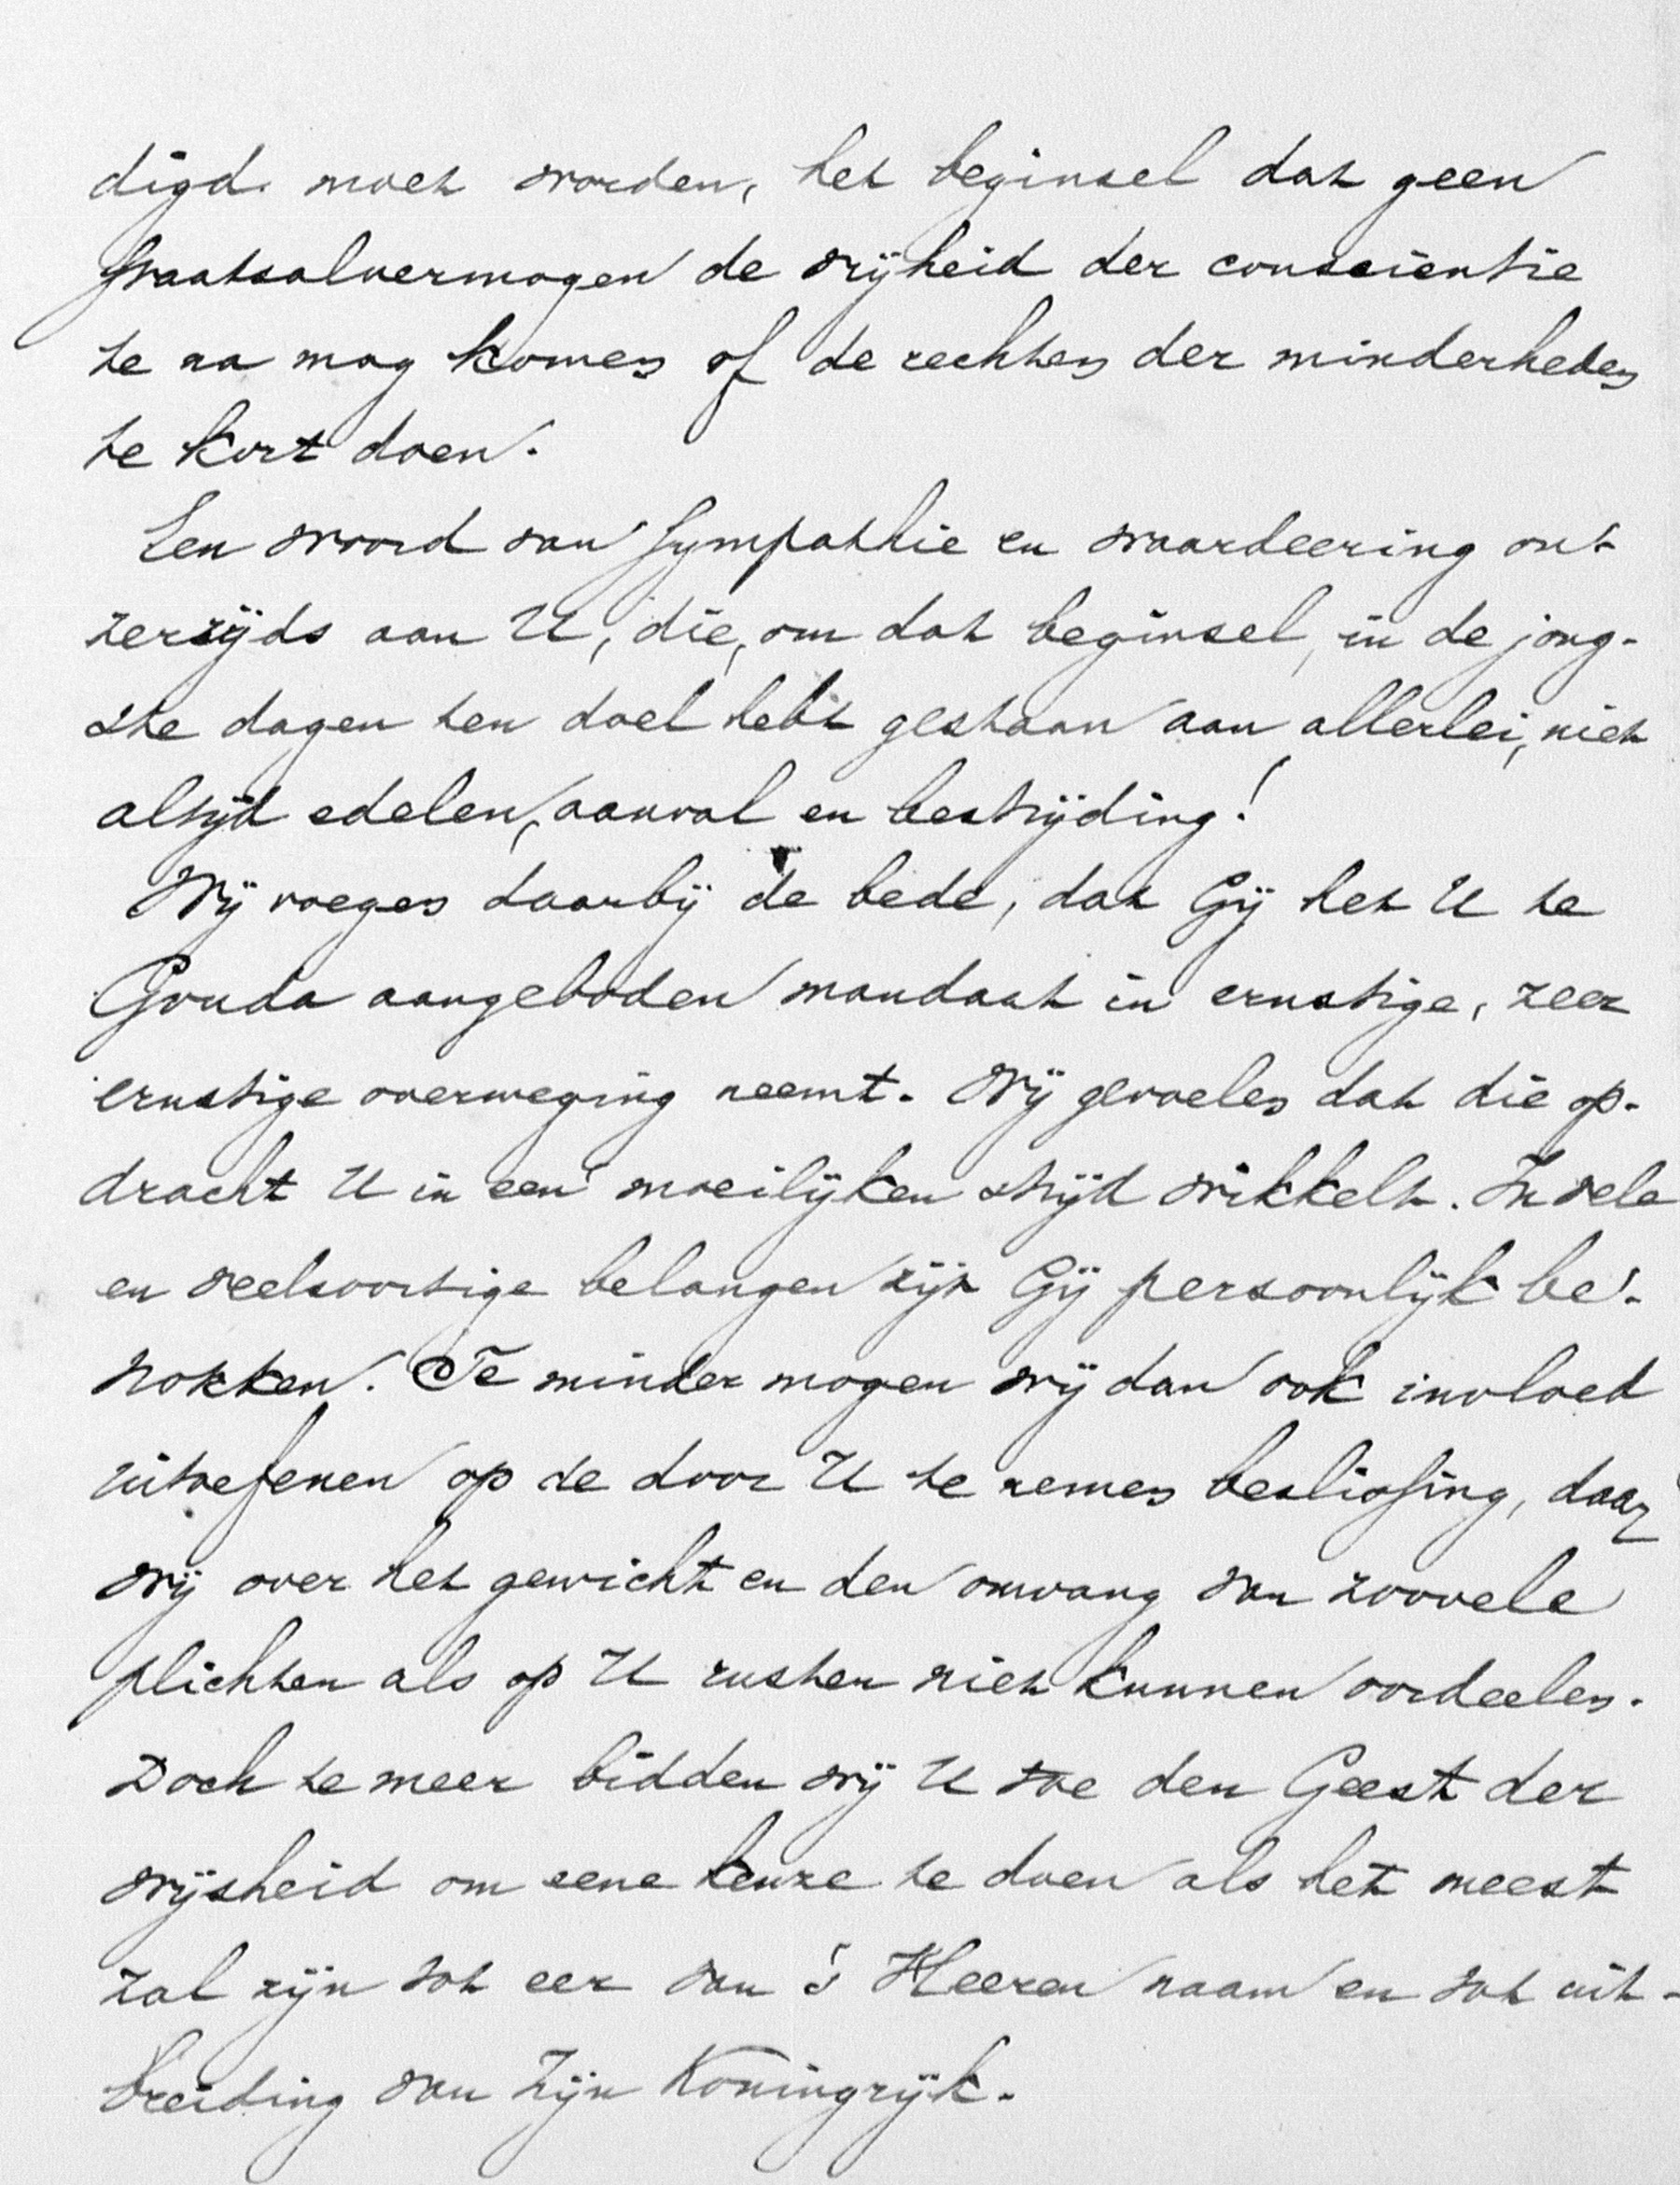 digd moet worden, het beginsel dat geen
Staatsalvermogen de vrijheid der consciëntie
te na mag komen of de rechten der minderheden
te kort doen.
Een woord van sympathie en waardeering on-
zerzijds aan U, die, om dat beginsel, in de jong-
ste dagen ten doel hebt gestaan aan allerlei, niet
altijd edelen, aanval en bestrijding!
Wij voegen daarbij de bede, dat Gij het U te
Gouda aangeboden mandaat in ernstige, zeer
ernstige overweging neemt. Wij gevoelen dat die op-
dracht U in een moeilijken strijd wikkelt. In vele
en veelsoortige belangen zijt Gij persoonlijk be-
trokken. Te minder mogen wij dan ook invloed
uitoefenen op de door U te nemen beslissing, daar
wij over het gewicht en den omvang van zoovele
plichten als op U rusten niet kunnen oordeelen.
Doch te meer bidden wij U toe den Geest der
wijsheid om eene keuze te doen als het meest
zal zijn tot eer van 's Heeren naam en tot uit-
breiding van Zijn Koningrijk.